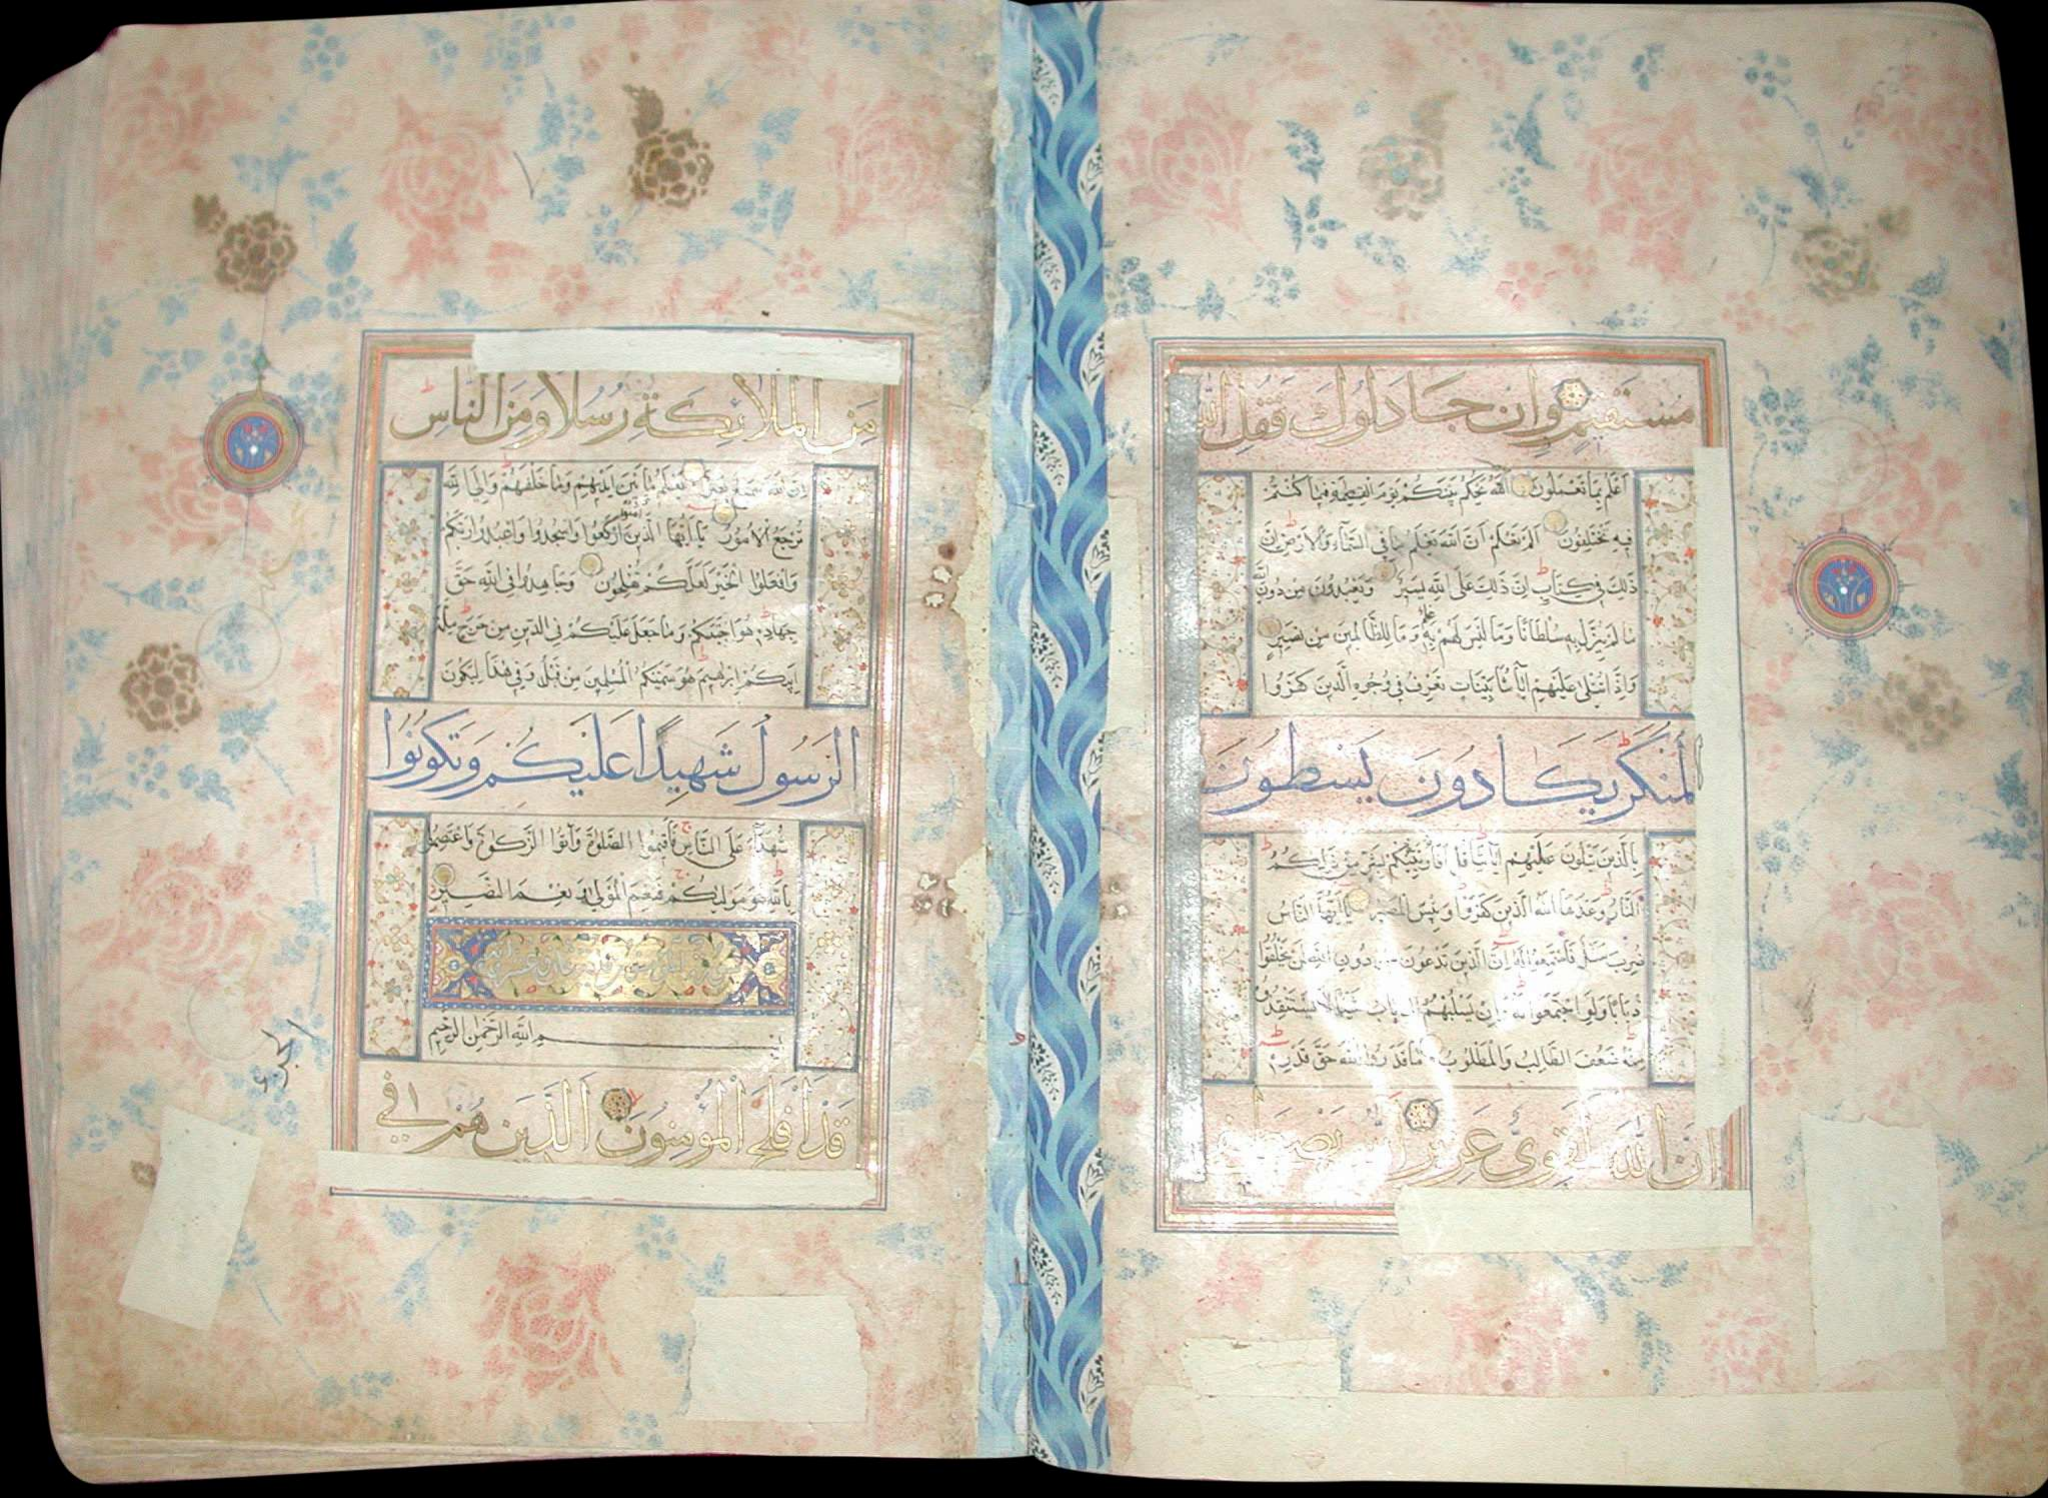 مستقيم وان جادلوك فقل الله
اعلم بما تعملون الله يحكم بينكم يوم القيمة فيما كنتم
فيه تختلفون الم تعلم ان الله يعلم ما في السماء والارض ان
ذلك في كتاب ان ذلك على الله يسير ويعبدون من دون الله
ما لم ينزل به سلطانا وما ليس لهم به علم وما للظالمين من نصير
واذا تتلى عليهم اياتنا بينات تعرف في وجوه الذين كفروا
المنكر يكادون يسطون
بالذين يتلون عليهم اياتنا قل افانبئكم بشر من ذلكم
النار وعدها الله الذين كفروا وبئس المصير يا ايها الناس
ضرب مثل فاستمعوا له ان الذين تدعون من دون الله لن يخلقوا
ذبابا ولو اجتمعوا له وان يسلبهم الذباب شيئا لا يستنقذوه
منه ضعف الطالب والمطلوب ما قدروا الله حق قدره
ان الله لقوي عزيز الله يصطفي
من الملائكة رسلا ومن الناس
ان الله سميع بصير يعلم ما بين ايديهم وما خلفهم والى الله
ترجع الامور يا ايها الذين امنوا اركعوا واسجدوا واعبدوا ربكم
وافعلوا الخير لعلكم تفلحون وجاهدوا في الله حق
جهاده هو اجتبيكم وما جعل عليكم في الدين من حرج ملة
ابيكم ابرهيم هو سميكم المسلمين من قبل وفي هذا ليكون
الرسول شهيدا عليكم وتكونوا
شهداء على الناس فاقيموا الصلوة واتوا الزكوة واعتصموا
بالله هو موليكم فنعم المولى ونعم النصير
بسم الله الرحمن الرحيم
قد افلح المؤمنون الذين هم في